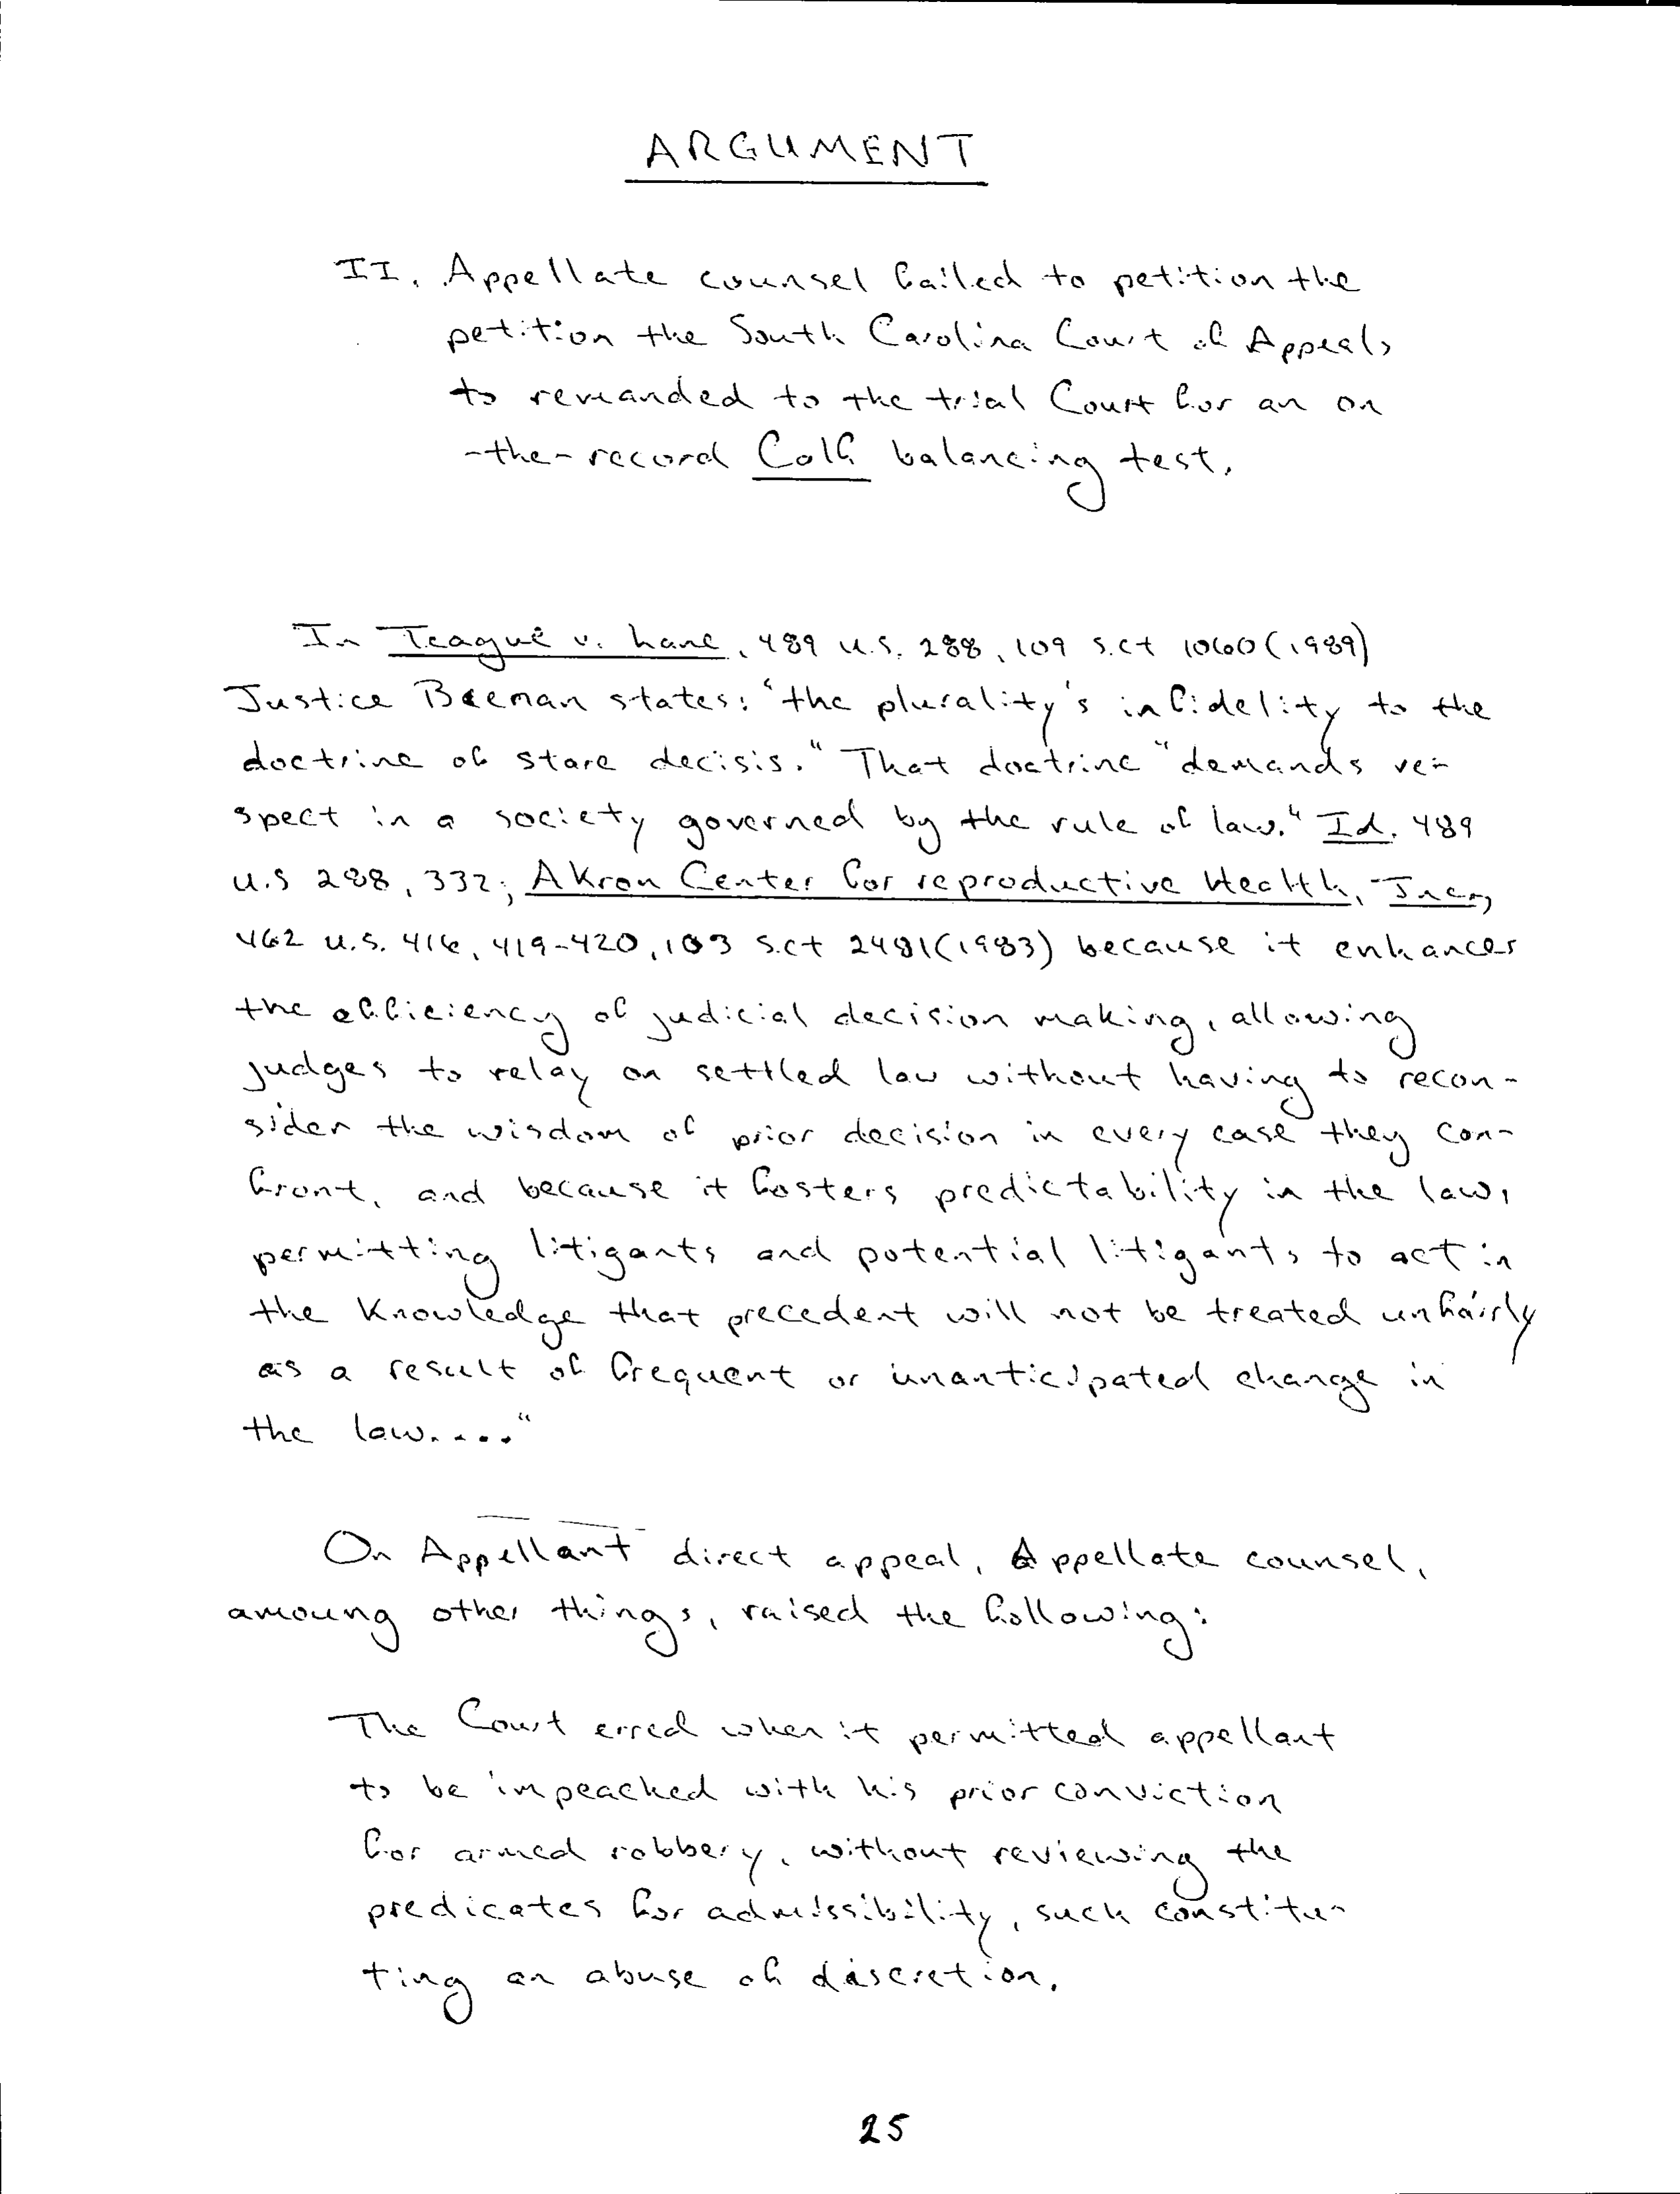 ARGUMENT
II. Appellate counsel failed to petition the
petition the South Carolina Court of Appeals
to remanded to the trial Court for an on
-the-record Colf balancing test.
In Teague v. Lane, 489 U.S. 288, 109 S.Ct 1060 (1989)
Justice Breman states: "the plurality's infidelity to the
doctrine of stare decisis." That doctrine "demands re-
spect in a society governed by the rule of law." Id. 489
U.S 288, 332; Akron Center for reproductive Health, Inc.,
462 U.S. 416, 419-420, 103 S.Ct 2481 (1983) because it enhances
the efficiency of judicial decision making, allowing
judges to relay on settled law without having to recon-
sider the wisdom of prior decision in every case they con-
front, and because it fosters predictability in the law,
permitting litigants and potential litigants to act in
the knowledge that precedent will not be treated unfairly
as a result of frequent or unanticipated change in
the law...."
On Appellant direct appeal, Appellate counsel,
amoung other things, raised the following:
The Court erred when it permitted appellant
to be impeached with his prior conviction
for armed robbery, without reviewing the
predicates for admissibility, such constitu-
ting an abuse of discretion.
25